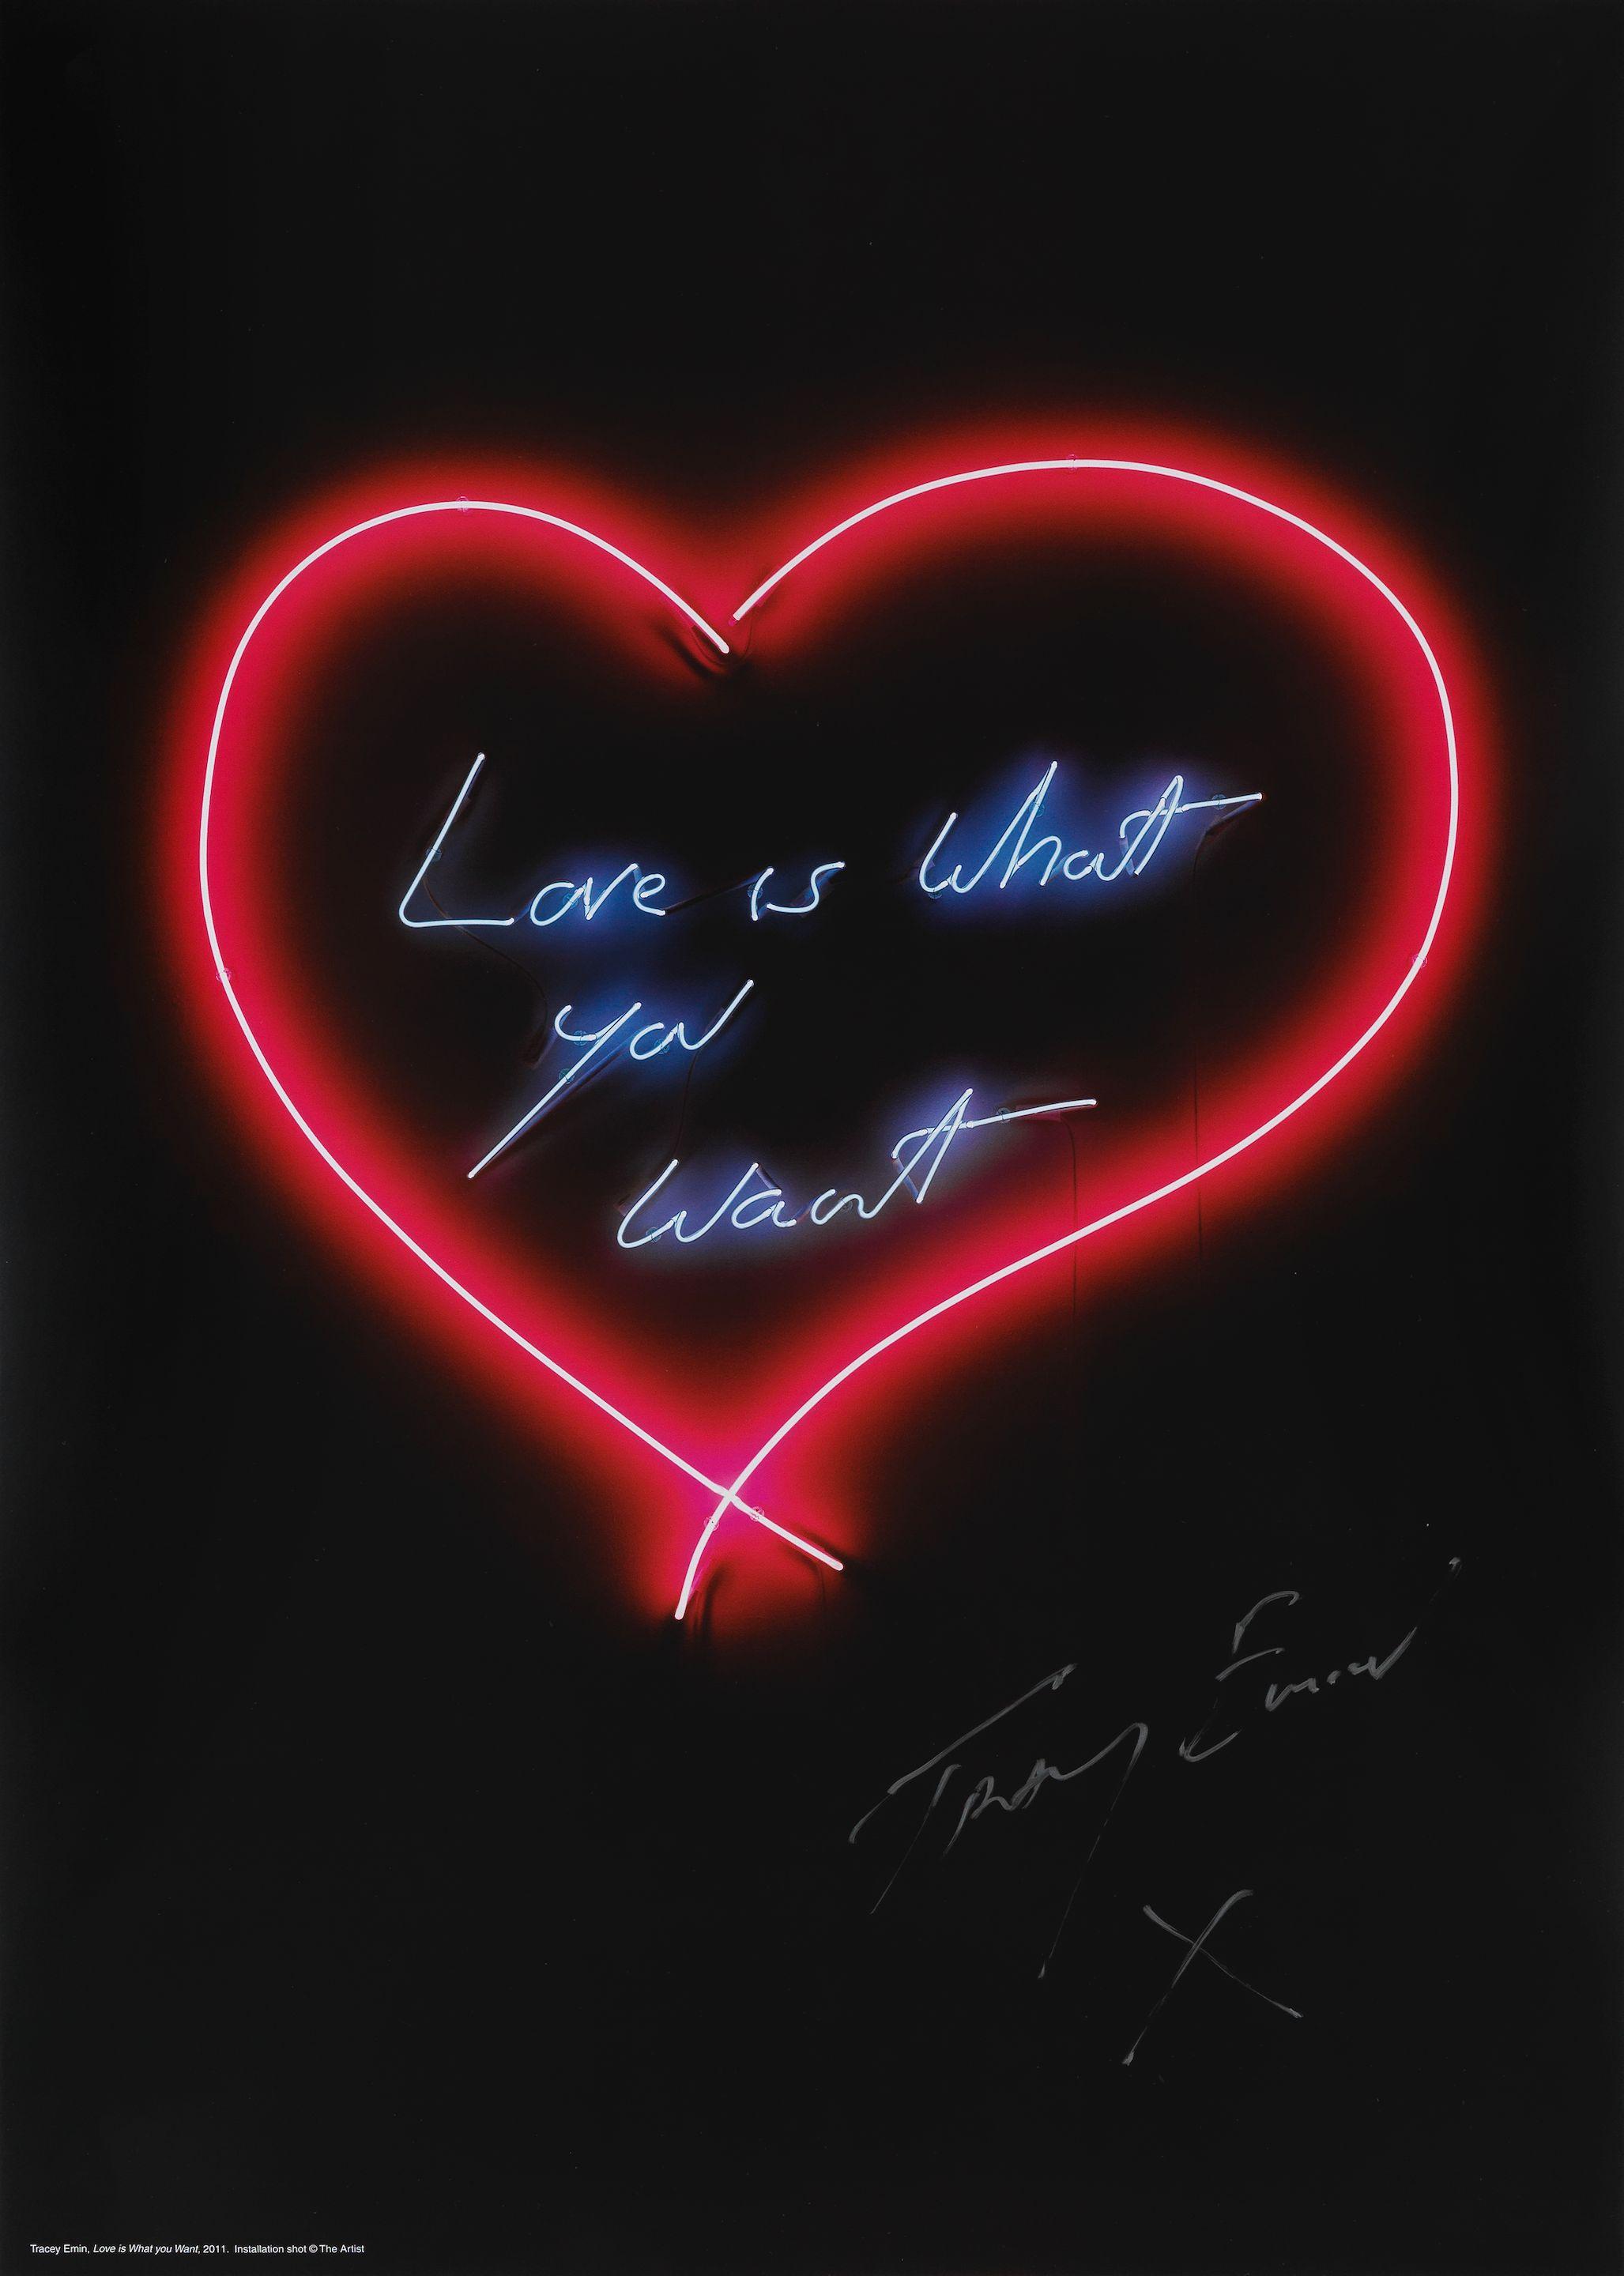 Love is What
you
Want
Tracey Emin
X
Tracey Emin, Love is What you Want, 2011. Installation shot © The Artist